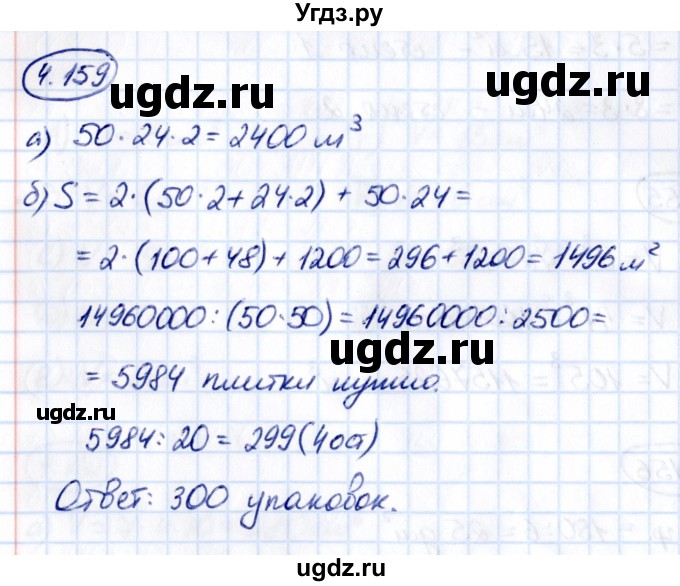 Угдз.ру
4.159
ugdz.ru
ugdz.ru
а) 50·24·2=2400 м³
б) S = 2·(50·2+24·2) + 50·24 =
= 2·(100+48)+1200=296+1200=1496 м²
14960000:(50·50)=14960000:2500=
ugdz.ru
= 5984 плитки нужно.
ugdz.ru
5984:20 = 299(4ост)
Ответ: 300 упаковок.
ugdz.ru
ugdz.ru
Угдз.ру